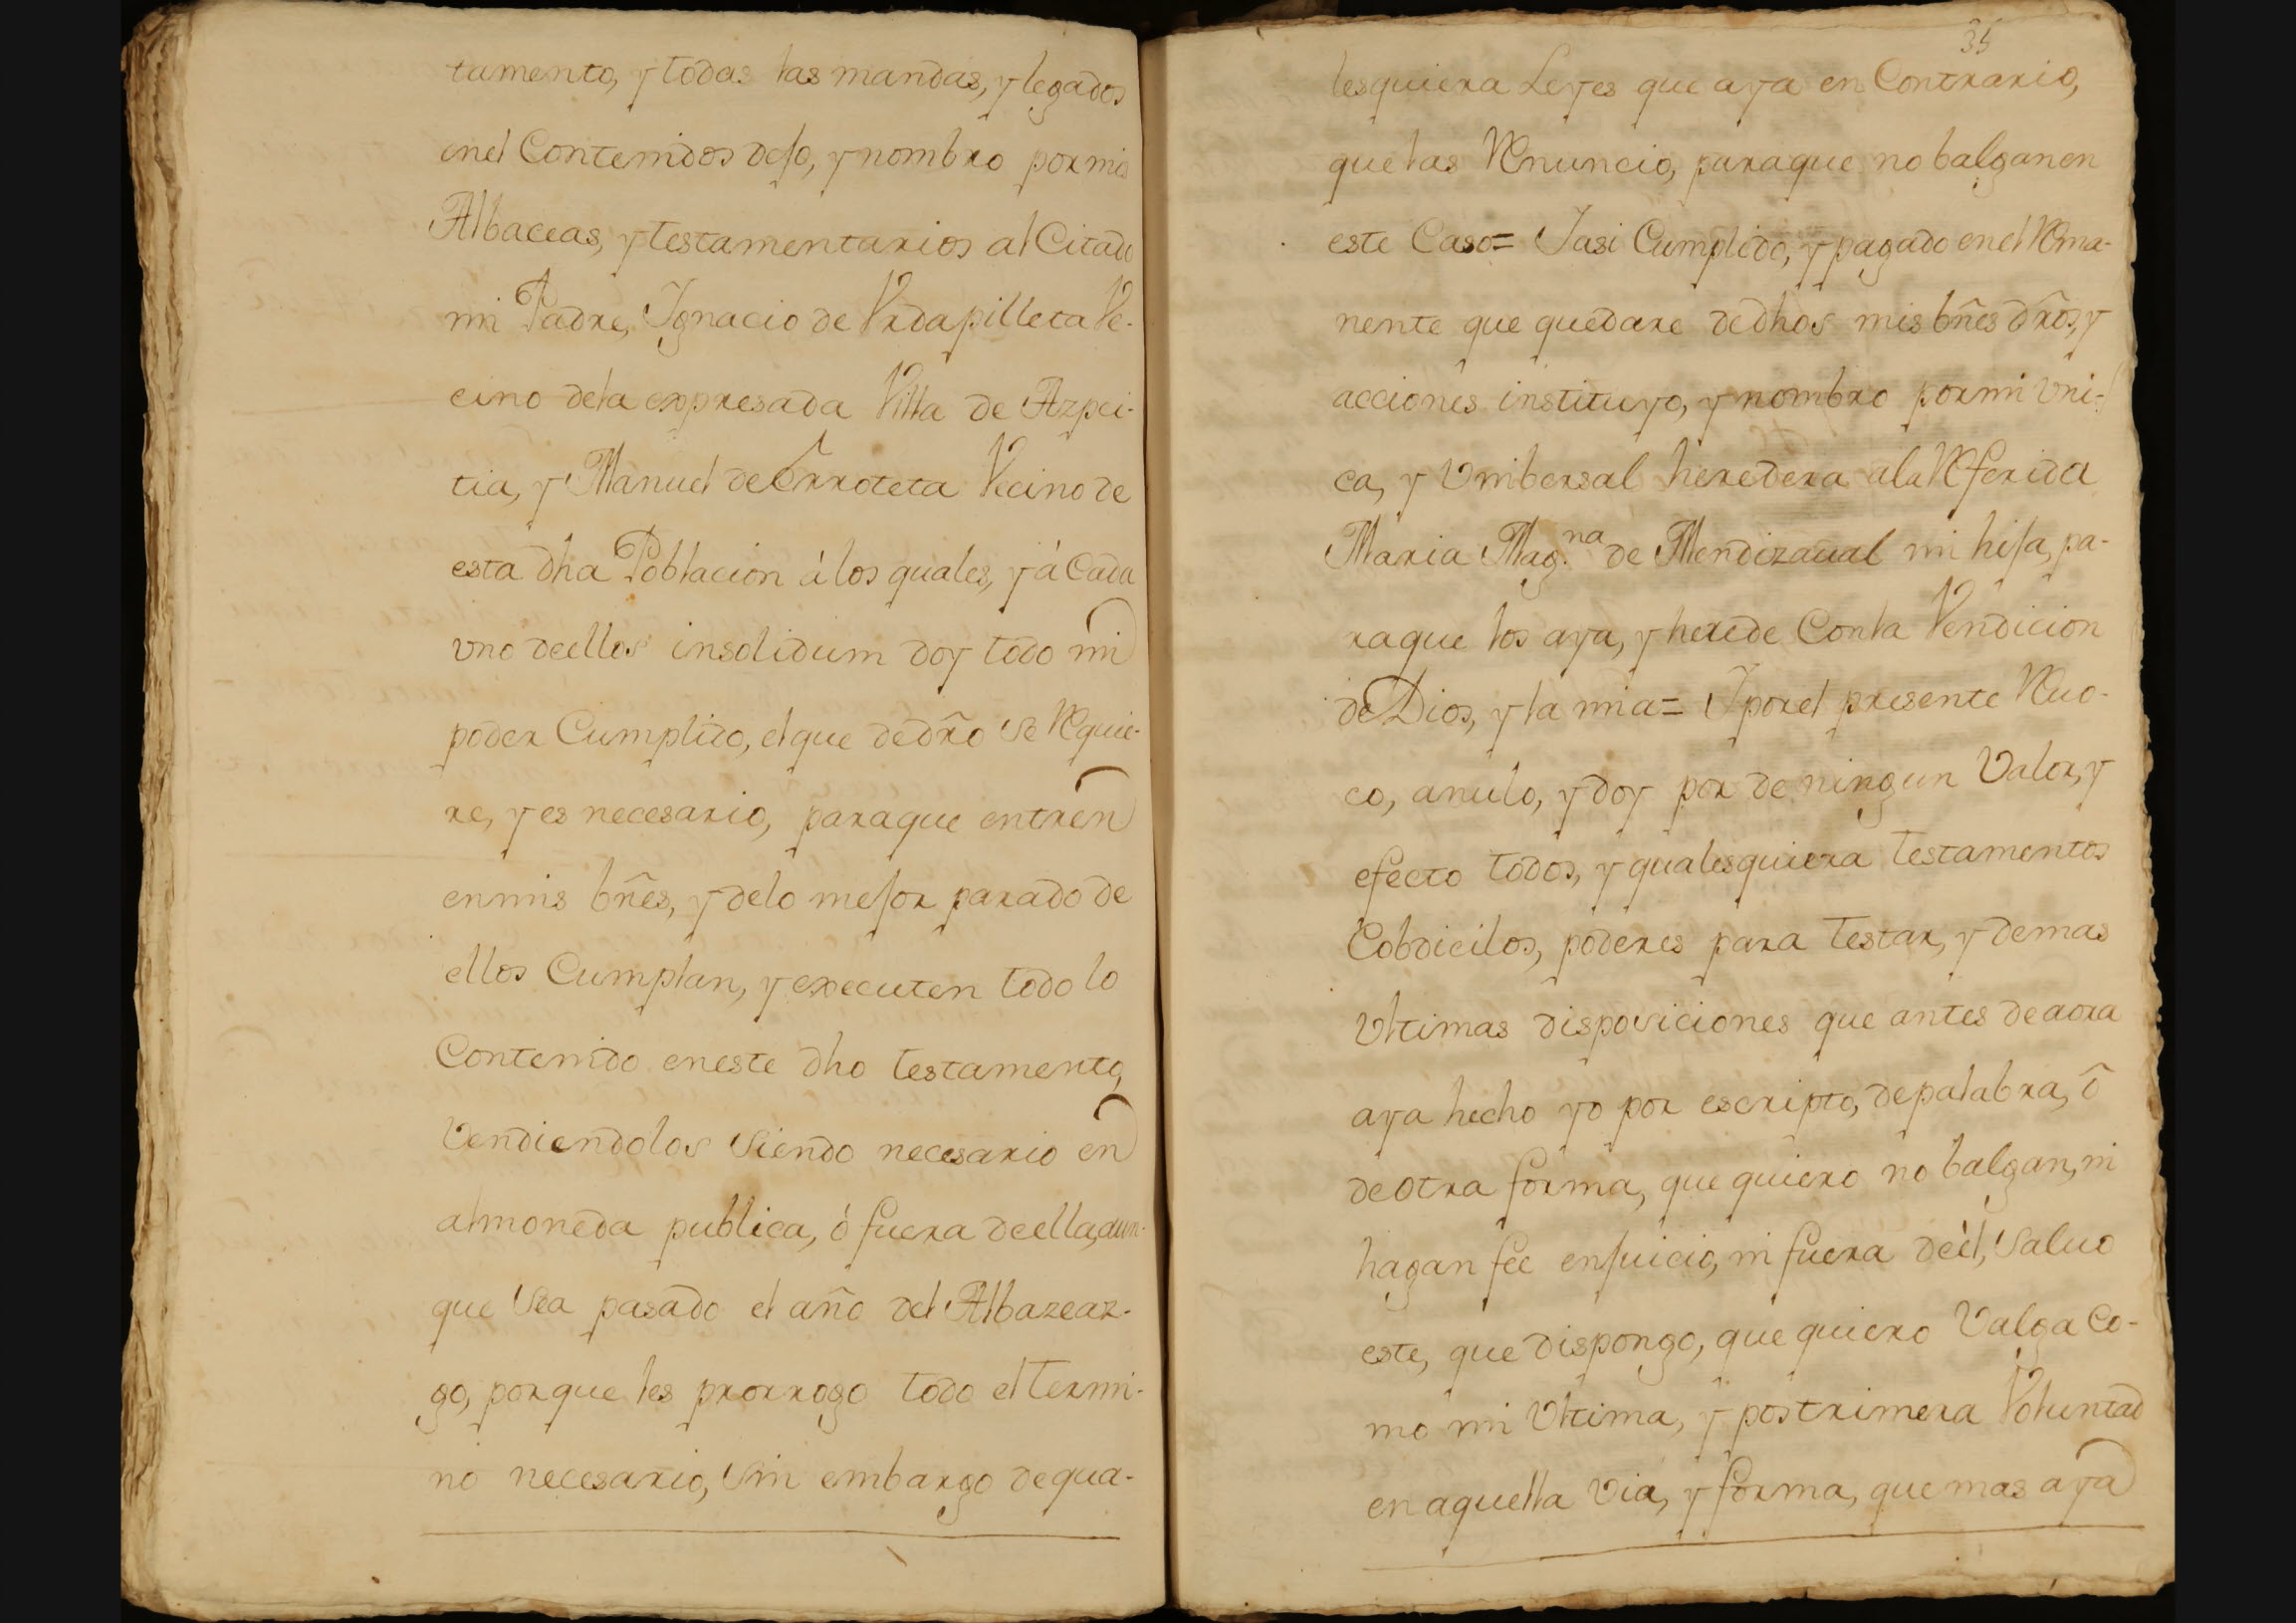 tamento, y todas las mandas, y legados
enel Contenidos dejo, y nombro por mis
Albaceas, y testamentarios al Citado
mi Padre, Ignacio de Vrdapilleta Ve-
cino dela expresada Villa de Azpei-
tia, y Manuel de Erroteta Vecino de
esta dha Poblacion á los quales, y á Cada
vno deellos insolidum doy todo mi
poder Cumplido, el que dedr̃o se Requie-
re, y es necesario, paraque entren
enmis bñes, y delo mejor parado de
ellos Cumplan, y executen todo lo
Contenido eneste dho testamento,
Vendiendolos siendo necesario en
almoneda publica, ó fuera deella, aun-
que sea pasado el año del Albazeaz-
go, porque les prorrogo todo el termi-
no necesario, sin embargo de qua-
35
lesquiera Leyes que aya en Contrario,
que las Renuncio, paraque no balgan en
este Caso= Iasi Cumplido, y pagado enel Rema-
nente que quedare dedhos mis bñes dr̃os, y
acciones instituyo, y nombro por mi vni-
ca, y Vnibersal heredera ala Referida
Maria Mag.na de Mendizaual mi hija, pa-
raque los aya, y herede Conla Vendicion
de Dios, y la mia= Iporel presente Reuo-
co, anulo, y doy por de ningun Valor, y
efecto todos, y qualesquiera testamentos
Cobdicilos, poderes para testar, y demas
Vltimas disposiciones que antes de aora
aya hecho yo por escripto, depalabra, ô
deotra forma, que quiero no balgan, ni
hagan fee enjuicio, ni fuera deèl, saluo
este, que dispongo, que quiero Valga Co-
mo mi Vltima, y postrimera Voluntad
en aquella via, y forma, que mas aya